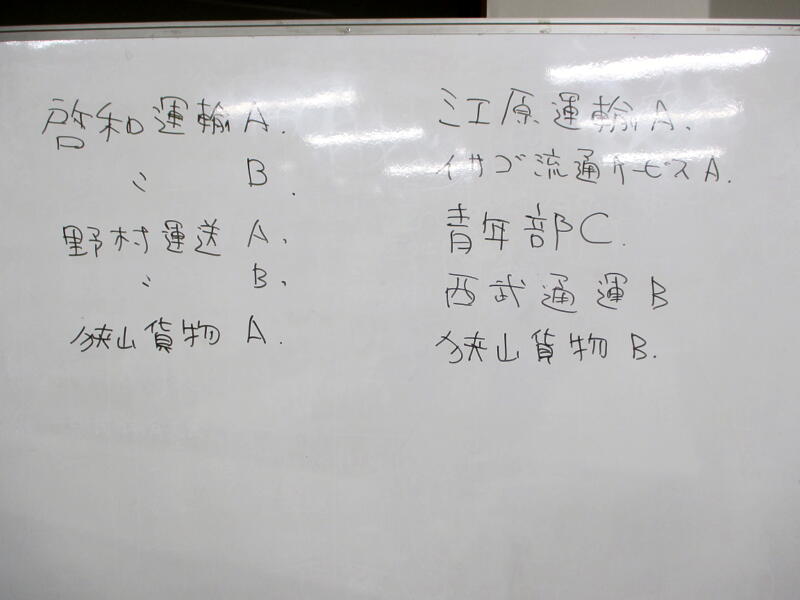 啓和運輸A.
〃 B.
野村運送 A.
〃 B.
狭山貨物 A.
江原運輸A.
イサゴ流通サービスA.
青年部C.
西武通運B
狭山貨物B.